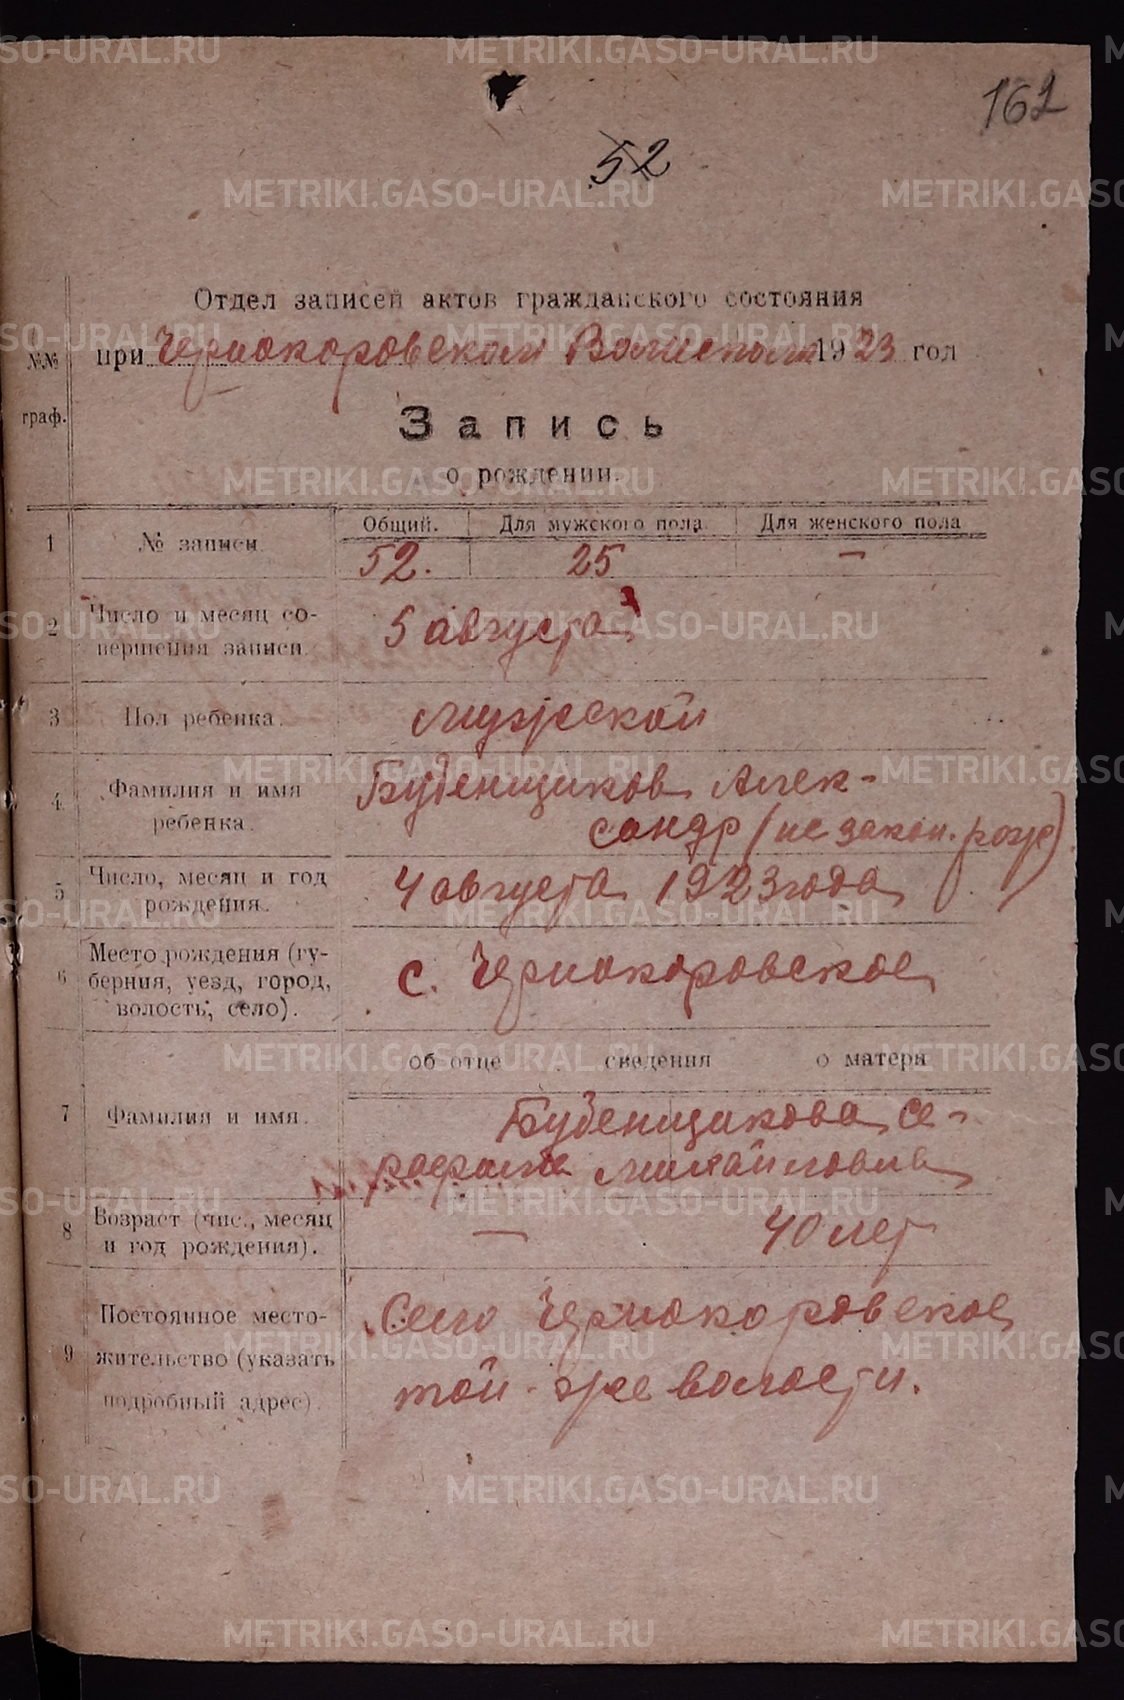 162
52
Отдел записей актов гражданского состояния
№№ граф.
при Чернокоровском Волисполк 1923 год
Запись
о рождении.
Общий. Для мужского пола. Для женского пола
1 № записи. 52. 25 —
2 Число и месяц со-
вершения записи. 5 августа
3 Пол ребенка. мужской
4. Фамилия и имя Буденщиков Алек-
ребенка. сандр (не закон. рожд)
5 Число, месяц и год
рождения. 4 августа 1923 года
Место рождения (гу-
6 берния, уезд, город, с. Чернокоровское
волость, село).
об отце сведения о матери
7 Фамилия и имя. Буденщикова Се-
рафима Михайловна
8 Возраст (чис., месяц
и год рождения). — 40 лет
Постоянное место- Село Чернокоровское
9 жительство (указать
подробный адрес). той-же волости.
METRIKI.GASO-URAL.RU